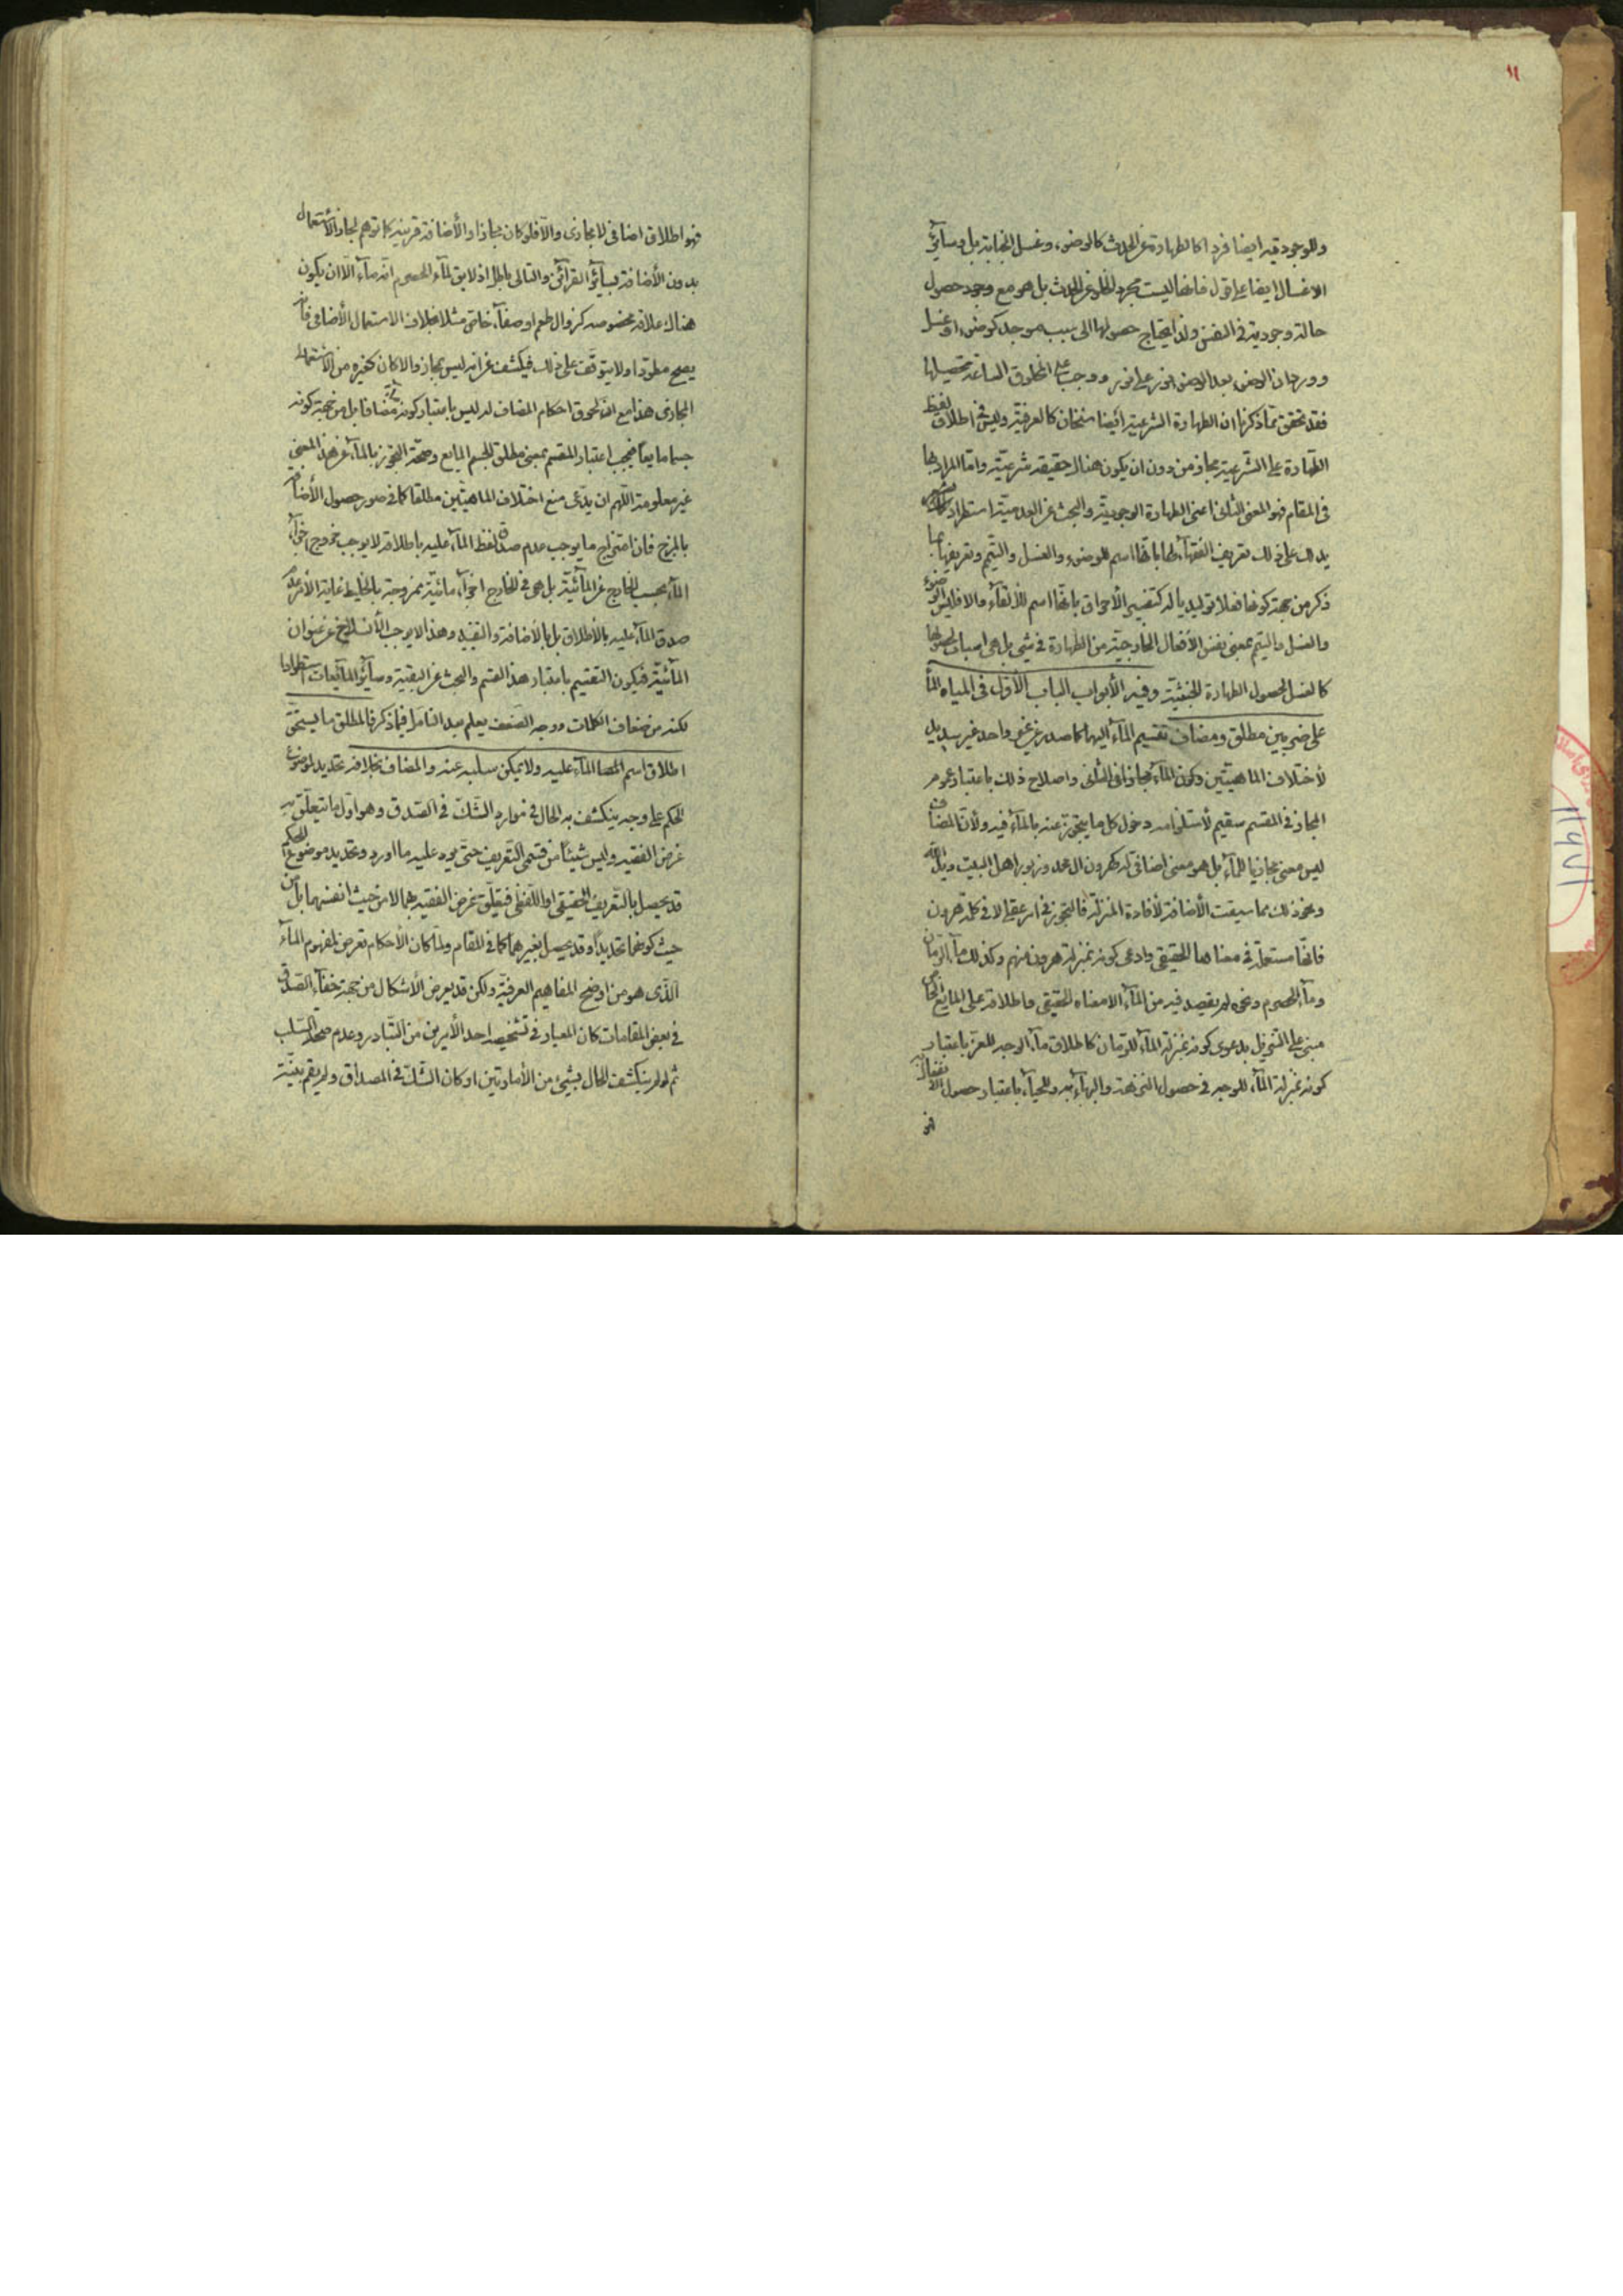 ١١
وللوجودية ايضا فرد كالطهارة عن الحدث كالوضوء وغسل الجنابة بل وسائر
الاغسال ايضا على قول فانها ليست مجرد الخلو عن الحدث بل هو مع وجود حصول
حالة وجودية في النفس ولذا يحتاج حصولها الى سبب موجد كوضوء او غسل
وورد ان الوضوء بعد الوضوء نور على نور ووجب على المخلوق الساعة تحصيلها
فقد تحقق مما ذكرنا ان الطهارة الشرعية ايضا معنيان كالعرفية وليس في اطلاق لفظ
الطهارة على الشرعية مجاز من دون ان يكون هناك حقيقة شرعية واما المراد بها
في المقام فهو المعنى الثاني اعنى الطهارة الوجودية والبحث عن العدمية استطراد
يدلك على ذلك تعريف الفقهاء لها بانها اسم للوضوء والغسل والتيمم وتعريفها بما
ذكر من جهة كونها فعلا توليديا له كتفسير الأحراق بانها اسم للألقاء والا فليس الوضوء
والغسل والتيمم بمعنى نفس الأفعال الخارجية من الطهارة في شئ بل هي اسباب لحصولها
كالغسل لحصول الطهارة الخبثية وفيه الأبواب الباب الأول في المياه الماء
على ضربين مطلق ومضاف تقسيم الماء اليهما كما صدر عن غير واحد غير سديد
لأختلاف الماهيتين وكون الماء مجازا في الثاني واصلاح ذلك باعتبار عموم
المجاز في المقسم سقيم لأستلزامه دخول كل ما يتجوز عنه بالماء فيه ولأن المضاف
ليس معنى مجازيا للماء بل هو معنى اضافي له كهرون ال محمد وزبور اهل البيت
ونحو ذلك مما سيقت الأضافة لأفادة المنزلة فالتجوز في امر عقلي لا في كلمة هرون
فانها مستعملة في معناها الحقيقي وادعى كونه بمنزلة هرون منهم وكذلك ماء الرمان
وماء الحصرم ونحوه لم يقصد فيه من الماء الا معناه الحقيقي واطلاقه على المايع الخاص
مبنى على التنزيل بدعوى كونه بمنزلة الماء للرمان كاطلاق ماء الوجه للعز باعتبار
كونه بمنزلة الماء للوجه في حصول النزهة والبهاء به وللحياء باعتبار حصول
فهو اطلاق اضافي لا مجازى والا فلو كان مجازا والأضافة قرينة كما توهم لجاز الأستعمال
بدون الأضافة بسائر القرائن والتالى باطل اذ لا يق لماء الحصرم انه ماء الا ان يكون
هناك علاقة مخصوصة كزوال طعم او صفاء خاص مثلا بخلاف الاستعمال الأضافي فانه
يصح مطردا ولا يتوقف على ذلك فيكشف عن انه ليس بمجاز والا كان كغيره من الأستعمال
المجازى هذا مع ان لحوق احكام المضاف له ليس باعتبار كونه مضافا بل من جهة كونه
جسما مايعا فيجب اعتبار المقسم بمعنى مطلق الجسم المايع وصحة التجوز بالماء عن هذا المعنى
غير معلومة اللهم ان يدعى منع اختلاف الماهيتين مطلقا كما في صور حصول الأضافة
بالمزج فان امتزاج ما يوجب عدم صدق لفظ الماء عليه باطلاقه لا يوجب خروج اجزاء
الماء بحسب الخارج عن المائية بل هي في الخارج اجزاء مائية ممزوجة بالخليط غاية الأمر عدم
صدق الماء عليه بالأطلاق بل بالأضافة والتقييد وهذا لا يوجب الأنسلاخ عن عنوان
المائية فيكون التقسيم باعتبار هذا القسم والبحث عن البقية وسائر المايعات استطرادا
لكنه من ضعاف الكلمات ووجه الضعف يعلم بعد التامل فيما ذكر فالمطلق ما يستحق
اطلاق اسم الماء عليه ولا يمكن سلبه عنه والمضاف بخلافه تحديد لموضوع
الحكم على وجه ينكشف به الحال في موارد الشك في الصدق وهو اول ما يتعلق به
غرض الفقيه وليس شيئا من قسمى التعريف حتى يرد عليه ما اورد وتحديد موضوع الحكم
قد يحصل بالتعريف الحقيقي او اللفظي فيتعلق غرض الفقيه بهما لا من حيث انفسهما بل من
حيث كونهما تحديدا وقد يحصل بغيرهما كما في المقام ولما كان الأحكام تعرض لمفهوم الماء
الذى هو من اوضح المفاهيم العرفية ولكن قد يعرض الأشكال من جهة خفاء الصدق
في بعض المقامات كان المعيار في تشخيصه احد الأمرين من التبادر وعدم صحة السلب
ثم لو لم ينكشف الحال بشئ من الأمارتين او كان الشك في المصداق ولم يقم بينة